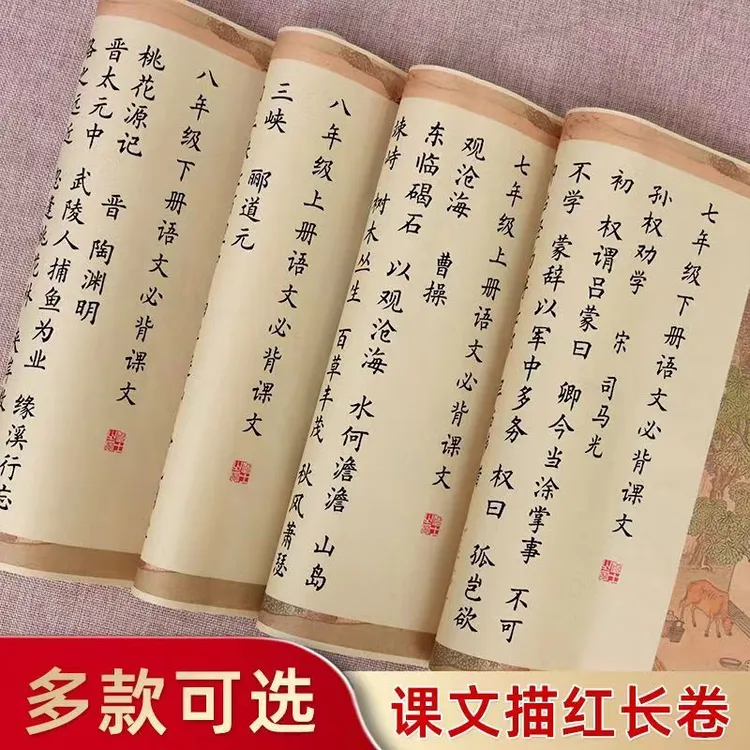 七年级下册语文必背课文
孙权劝学
宋 司马光
初 权谓吕蒙曰 卿今当涂掌事 不可
不学 蒙辞以军中多务 权曰 孤岂欲
七年级上册语文必背课文
观沧海
曹操
东临碣石 以观沧海 水何澹澹 山岛
竦峙 树木丛生 百草丰茂 秋风萧瑟
八年级上册语文必背课文
三峡
郦道元
八年级下册语文必背课文
桃花源记
晋 陶渊明
晋太元中 武陵人捕鱼为业 缘溪行忘
路之远近
多款可选
课文描红长卷